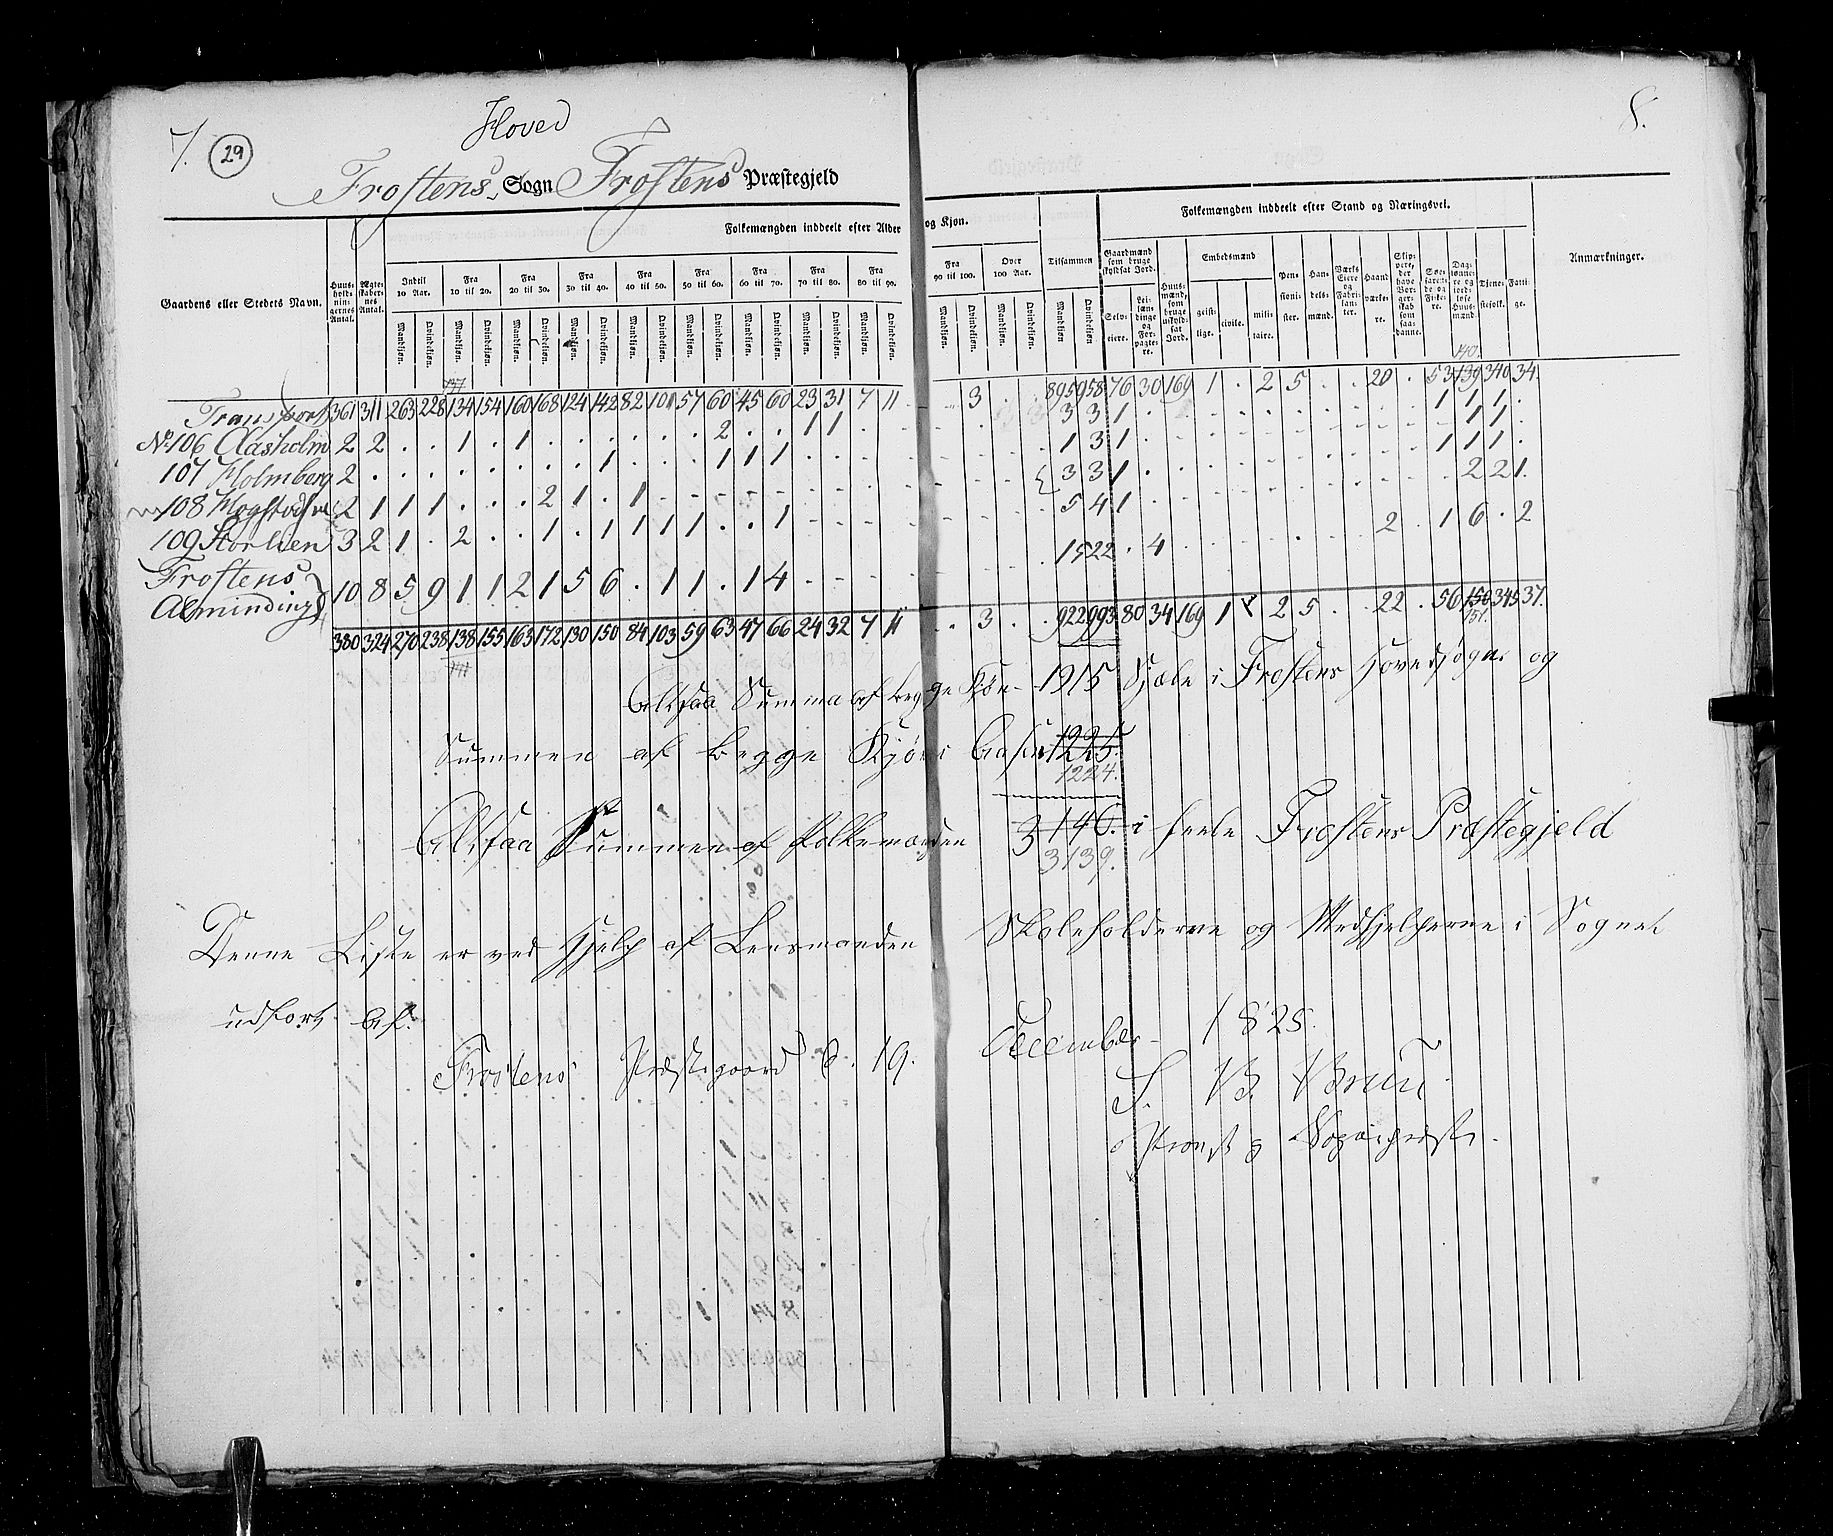 7. 29
8.
Hoved
Frostens Sogn Frostens Præstegjeld
Folkemængden inddeelt efter Alder og Kjøn.
Folkemængden inddeelt efter Stand og Næringsvei.
Gaardens eller Stedets Navn. Huusholdningernes Antal. Ægteskabernes Antal. Indtil 10 Aar. Fra 10 til 20. Fra 20 til 30. Fra 30 til 40. Fra 40 til 50. Fra 50 til 60. Fra 60 til 70. Fra 70 til 80. Fra 80 til 90. Fra 90 til 100. Over 100 Aar. Tilsammen Gaardmænd som bruge skyldsat Jord. Huusmænd, som bruge uskyldsat Jord. Embedsmænd Pensionister. Handelsmænd. Værks Eiere og Fabrikanter. Haandværkere. Skippere, der have Borgerskab som saadanne. Tjenestefolk. Fattige. Anmærkninger.
Mandkjøn. Qvindekjøn. Mandkjøn. Qvindekjøn. Mandkjøn. Qvindekjøn. Mandkjøn. Qvindekjøn. Mandkjøn. Qvindekjøn. Mandkjøn. Qvindekjøn. Mandkjøn. Qvindekjøn. Mandkjøn. Qvindekjøn. Mandkjøn. Qvindekjøn. Mandkjøn. Qvindekjøn. Mandkjøn. Qvindekjøn. Mandkjøn Qvindekjøn. Selveiere. Leilændinge og Forpagtere. geistlige. civile. militaire.
137 140.
Transport 361 311 263 228 134 154 160 168 124 142 82 101 57 60 45 60 23 31 7 11 . . 3 . . 895 958 76 30 169 1 . 2 5 . . 20 . 53 139 340 34.
No 106 Aasholm 2 2 . . 1 . 1 . . . . . . 2 . . 1 1 3 3 1 1 1 1
107 Holmberg 2 . . . . . . . . 1 . . . 1 1 1 1 3 1 1 1
108 2 1 1 1 . . . 2 1 . 1 3 3 1 1 1 1
109 Storlien 3 2 1 . 2 . . 1 . 1 1 1 1 . . 1 5 4 1 2 2 1.
Frostens Alminding 10 8 5 9 1 1 2 1 5 6 . 1 1 . 1 4 15 22 . 4 2 . 1 6 . 2
380 324 270 238 138 155 163 172 130 150 84 103 59 63 47 66 24 32 7 11 . . 3 . . 922 993 80 34 169 1 2 5 . . 22 . 56 150 345 37.
141 151.
Altsaa Summa af begge Kjøn 1915 Sjæle i Frostens Hovedsogn og
Summen af begge Kjøn i 1225.
1224.
Altsaa Summen af Folkemænden 3140. i heele Frostens Præstegjeld
3139.
Denne Liste er ved Hjelp af Lensmanden Skoleholderne og Medhjelperne i Sognet
udført af.
Frostens Præstegaard d. 19. December 1825.
S. B. Bruun
Provst og Sognepræst.